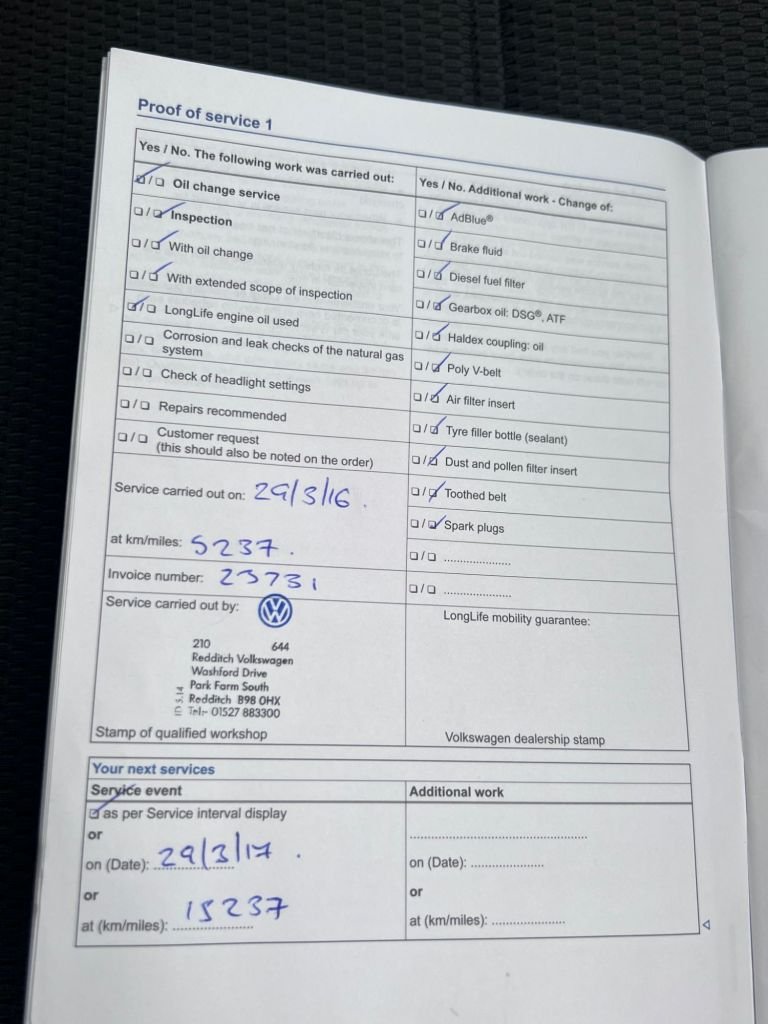 Proof of service 1
Yes / No. The following work was carried out:
☑/☐ Oil change service
☐/☑ Inspection
☐/☑ With oil change
☐/☑ With extended scope of inspection
☑/☐ LongLife engine oil used
☐/☐ Corrosion and leak checks of the natural gas
system
☐/☐ Check of headlight settings
☐/☐ Repairs recommended
☐/☐ Customer request
(this should also be noted on the order)
Service carried out on: 29/3/16.
at km/miles: 5237.
Invoice number: 23731
Service carried out by:
VW
210 644
Redditch Volkswagen
Washford Drive
Park Farm South
Redditch B98 0HX
Tel:- 01527 883300
Stamp of qualified workshop
Yes / No. Additional work - Change of:
☐/☑ AdBlue®
☐/☑ Brake fluid
☐/☑ Diesel fuel filter
☐/☑ Gearbox oil: DSG®, ATF
☐/☑ Haldex coupling: oil
☐/☑ Poly V-belt
☐/☑ Air filter insert
☐/☑ Tyre filler bottle (sealant)
☐/☑ Dust and pollen filter insert
☐/☑ Toothed belt
☐/☑ Spark plugs
☐/☐ .....................
☐/☐ .....................
LongLife mobility guarantee:
Volkswagen dealership stamp
Your next services
Service event
☑ as per Service interval display
or
on (Date): 29/3/17.
or
at (km/miles): 15237
Additional work
.......................................................
on (Date): ......................
or
at (km/miles): ......................